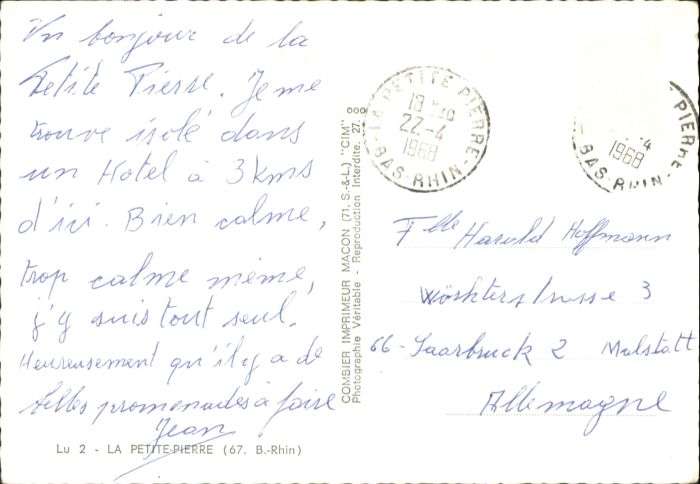 Un bonjour de la
Petite Pierre. Je me
trouve isolé dans
un Hotel à 3 kms
d'ici. Bien calme,
trop calme même,
j'y suis tout seul.
Heureusement qu'il y a de
belles promenades à faire
Jean
Lu 2 - LA PETITE-PIERRE (67. B.-Rhin)
COMBIER IMPRIMEUR MACON (71. S.-&-L.) "CIM"
Photographie Véritable - Reproduction Interdite. 27. 8
LA PETITE PIERRE
18
22-4
1968
BAS-RHIN
PIERRE
4
1968
BAS-RHIN
Flle Harold Hoffmann
3
66-Saarbruck 2 Malstatt
Allemagne